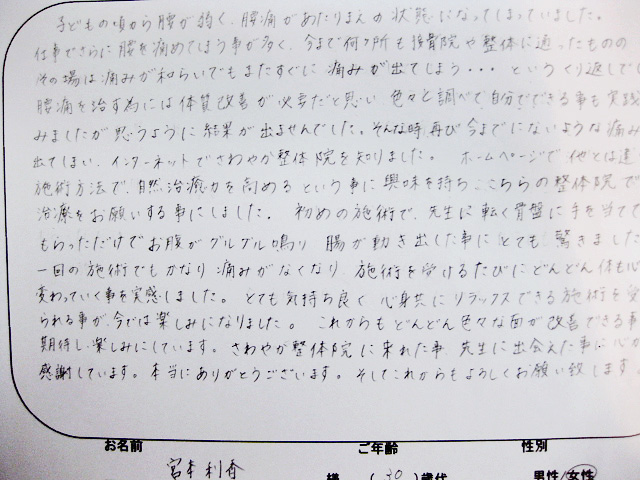 子どもの頃から腰が弱く、腰痛があたりまえの状態になってしまっていました。
仕事でさらに腰を痛めてしまう事が多く、今まで何ヶ所も接骨院や整体に通ったものの
その場は痛みが和らいでもまたすぐに痛みが出てしまう・・・というくり返しでし
腰痛を治す為には体質改善が必要だと思い、色々と調べて自分でできる事も実践
みましたが思うように結果が出ませんでした。そんな時、再び今までにないような痛み
出てしまい、インターネットでさわやか整体院を知りました。 ホームページで他とは違
施術方法で、自然治癒力を高めるという事に興味を持ち、こちらの整体院で
治療をお願いする事にしました。 初めの施術で、先生に軽く骨盤に手を当てて
もらっただけでお腹がグルグル鳴り 腸が動き出した事にとても驚きました
一回の施術でもかなり痛みがなくなり、施術を受けるたびにどんどん体も心
変わっていく事を実感しました。とても気持ち良く 心身共にリラックスできる施術を受
られる事が、今では楽しみになりました。 これからもどんどん色々な面が改善できる事
期待し、楽しみにしています。 さわやか整体院に来れた事、先生に出会えた事に心か
感謝しています。本当にありがとうございます。そしてこれからもよろしくお願い致します。
お名前 ご年齢 性別
宮本利香 様 (30)歳代 男性/女性